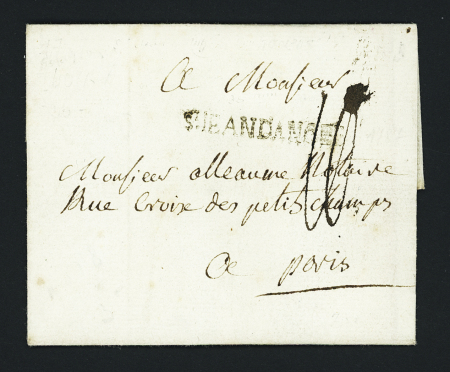 A Monsieur
ST JEAN D'ANGELY
Monsieur alleaume Notaire
Rue Croix des petits champs
A paris